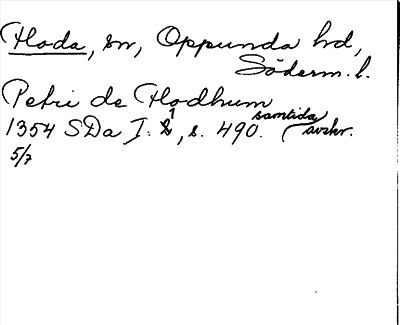 Floda, sn, Oppunda hd,
Söderm. l.
Petri de Flodhum
1354 SDa I: 1, s. 490. samtida avskr.
5/7